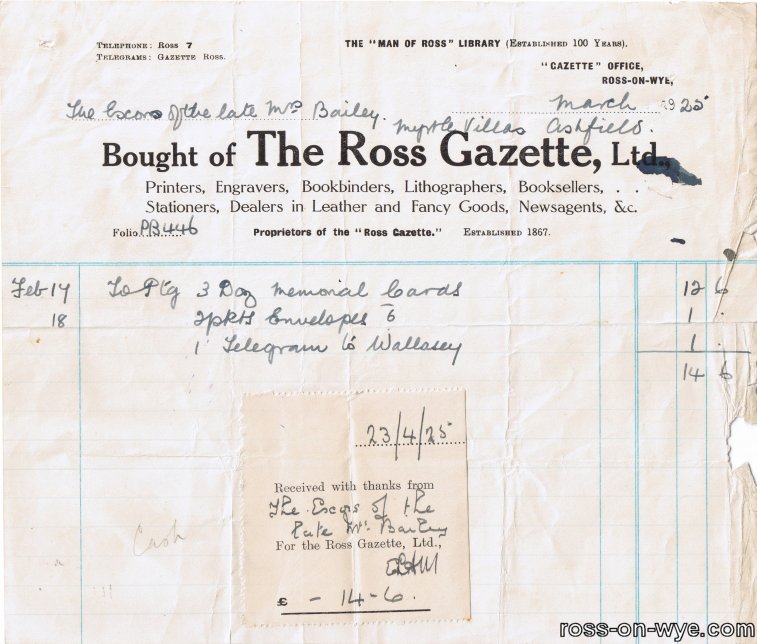 TELEPHONE: ROSS 7
TELEGRAMS: GAZETTE ROSS.
THE "MAN OF ROSS" LIBRARY (ESTABLISHED 100 YEARS).
"GAZETTE" OFFICE,
ROSS-ON-WYE,
March 1925
The Excors of the late Mrs Bailey.
Myrtle Villas Ashfield.
Bought of The Ross Gazette, Ltd.,
Printers, Engravers, Bookbinders, Lithographers, Booksellers, . .
Stationers, Dealers in Leather and Fancy Goods, Newsagents, &c.
Folio PB446 Proprietors of the "Ross Gazette." ESTABLISHED 1867.
Feb 17 To Ptg 3 Doz Memorial Cards 12 6
18 2pkts Envelopes 6 1 .
1 Telegram to Wallasey 1 .
14 6
23/4/25
Received with thanks from
The Excors of the
late Mrs Bailey
For the Ross Gazette, Ltd.,
£ - 14-6.
Cash
ross-on-wye.com